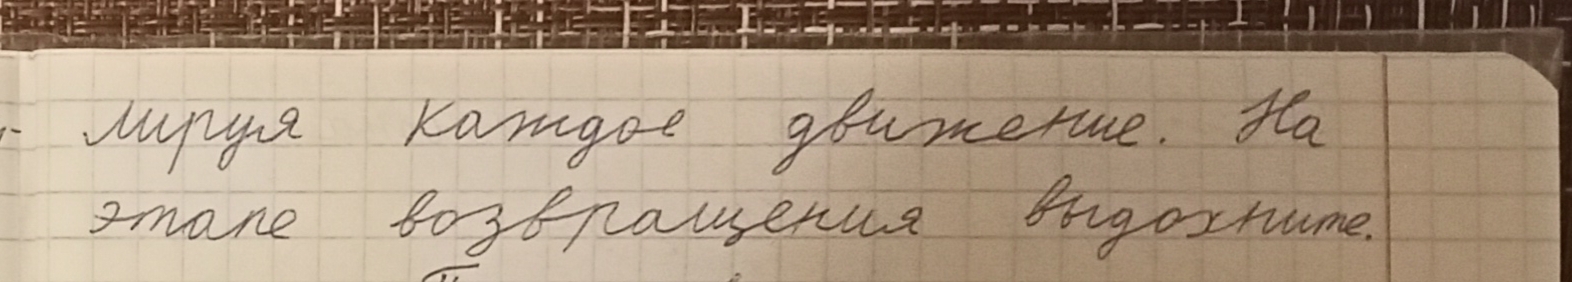 лируя каждое движение. На
этапе возвращения выдохните.